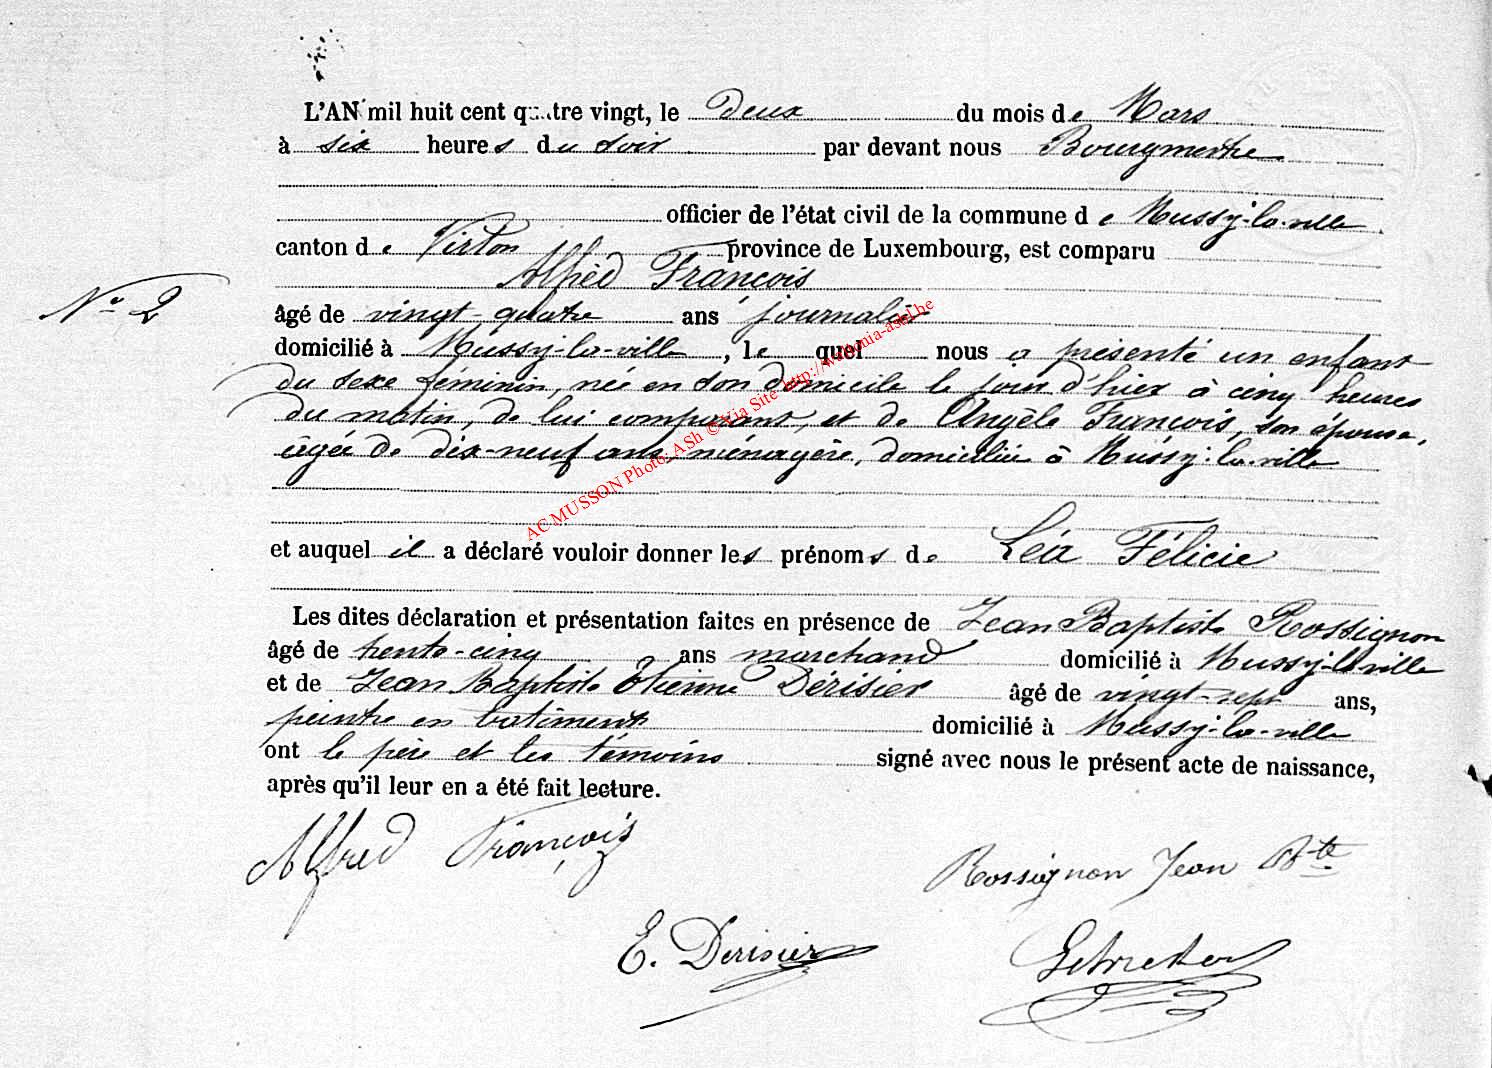 L'AN mil huit cent quatre vingt, le deux du mois de Mars
à six heures du soir par devant nous Bourgmestre
officier de l'état civil de la commune de Mussy-la-ville
canton de Virton province de Luxembourg, est comparu
Alfred François
N° 2
âgé de vingt-quatre ans journalier
domicilié à Mussy-la-ville, le quel nous a présenté un enfant
du sexe féminin, née en son domicile le jour d'hier à cinq heures
du matin, de lui comparant, et de Angèle François, son épouse,
âgée de dix-neuf ans, ménagère, domiciliée à Mussy-la-ville
AC MUSSON Photo: ASh © Via Site http://wallonia-asbl.be
et auquel il a déclaré vouloir donner les prénoms de Léa Félicie
Les dites déclaration et présentation faites en présence de Jean Baptiste Rossignon
âgé de trente-cinq ans marchand domicilié à Mussy-la-ville
et de Jean Baptiste Etienne Dérisier âgé de vingt-sept ans,
peintre en batiments domicilié à Mussy-la-ville
ont le père et les témoins signé avec nous le présent acte de naissance,
après qu'il leur en a été fait lecture.
Alfred François
Rossignon Jean Bte
E. Derisier